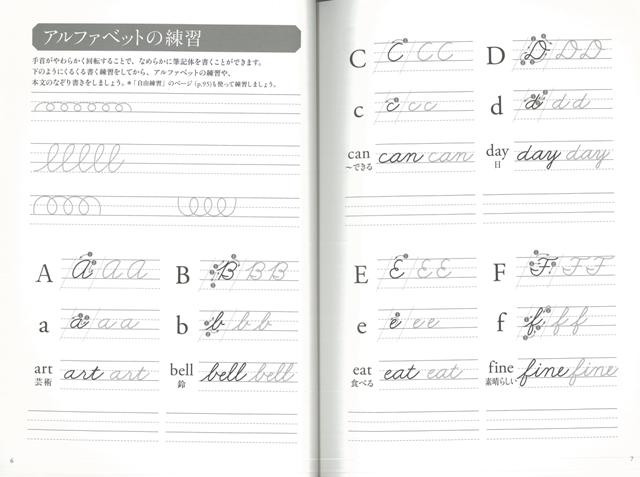 アルファベットの練習
手首がやわらかく回転することで、なめらかに筆記体を書くことができます。
下のようにくるくる書く練習をしてから、アルファベットの練習や、
本文のなぞり書きをしましょう。*「自由練習」のページ(p.95)も使って練習しましょう。
lllll
A A A A
B B B B
a a a a
b b b b
art art art
芸術
bell bell bell
鈴
6
C C C C
D D D D
c c c c
d d d d
can can can
〜できる
day day day
日
E E E E
F F F F
e e e e
f f f f
eat eat eat
食べる
fine fine fine
素晴らしい
7